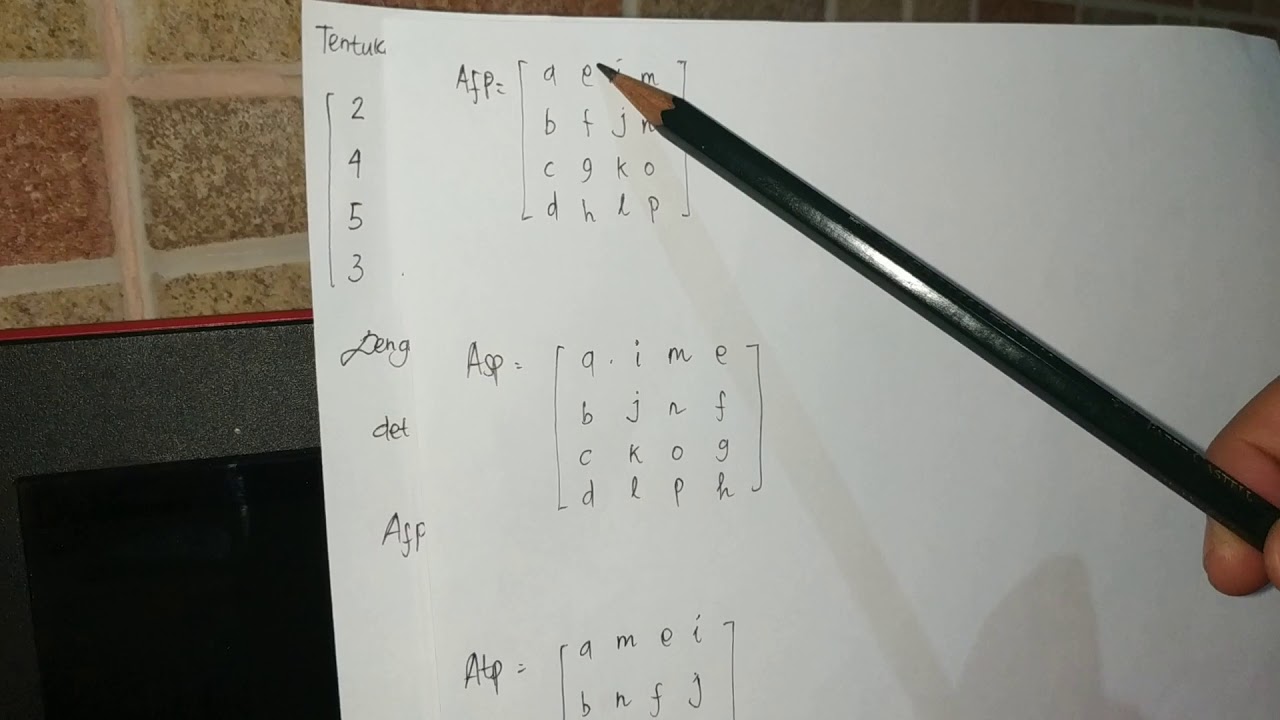 Tentuk
2
4
5
3
Deng
det
Afp
Afp = a e i m
b f j n
c g k o
d h l p
Asp = a i m e
b j n f
c k o g
d l p h
Atp = a m e i
b n f j